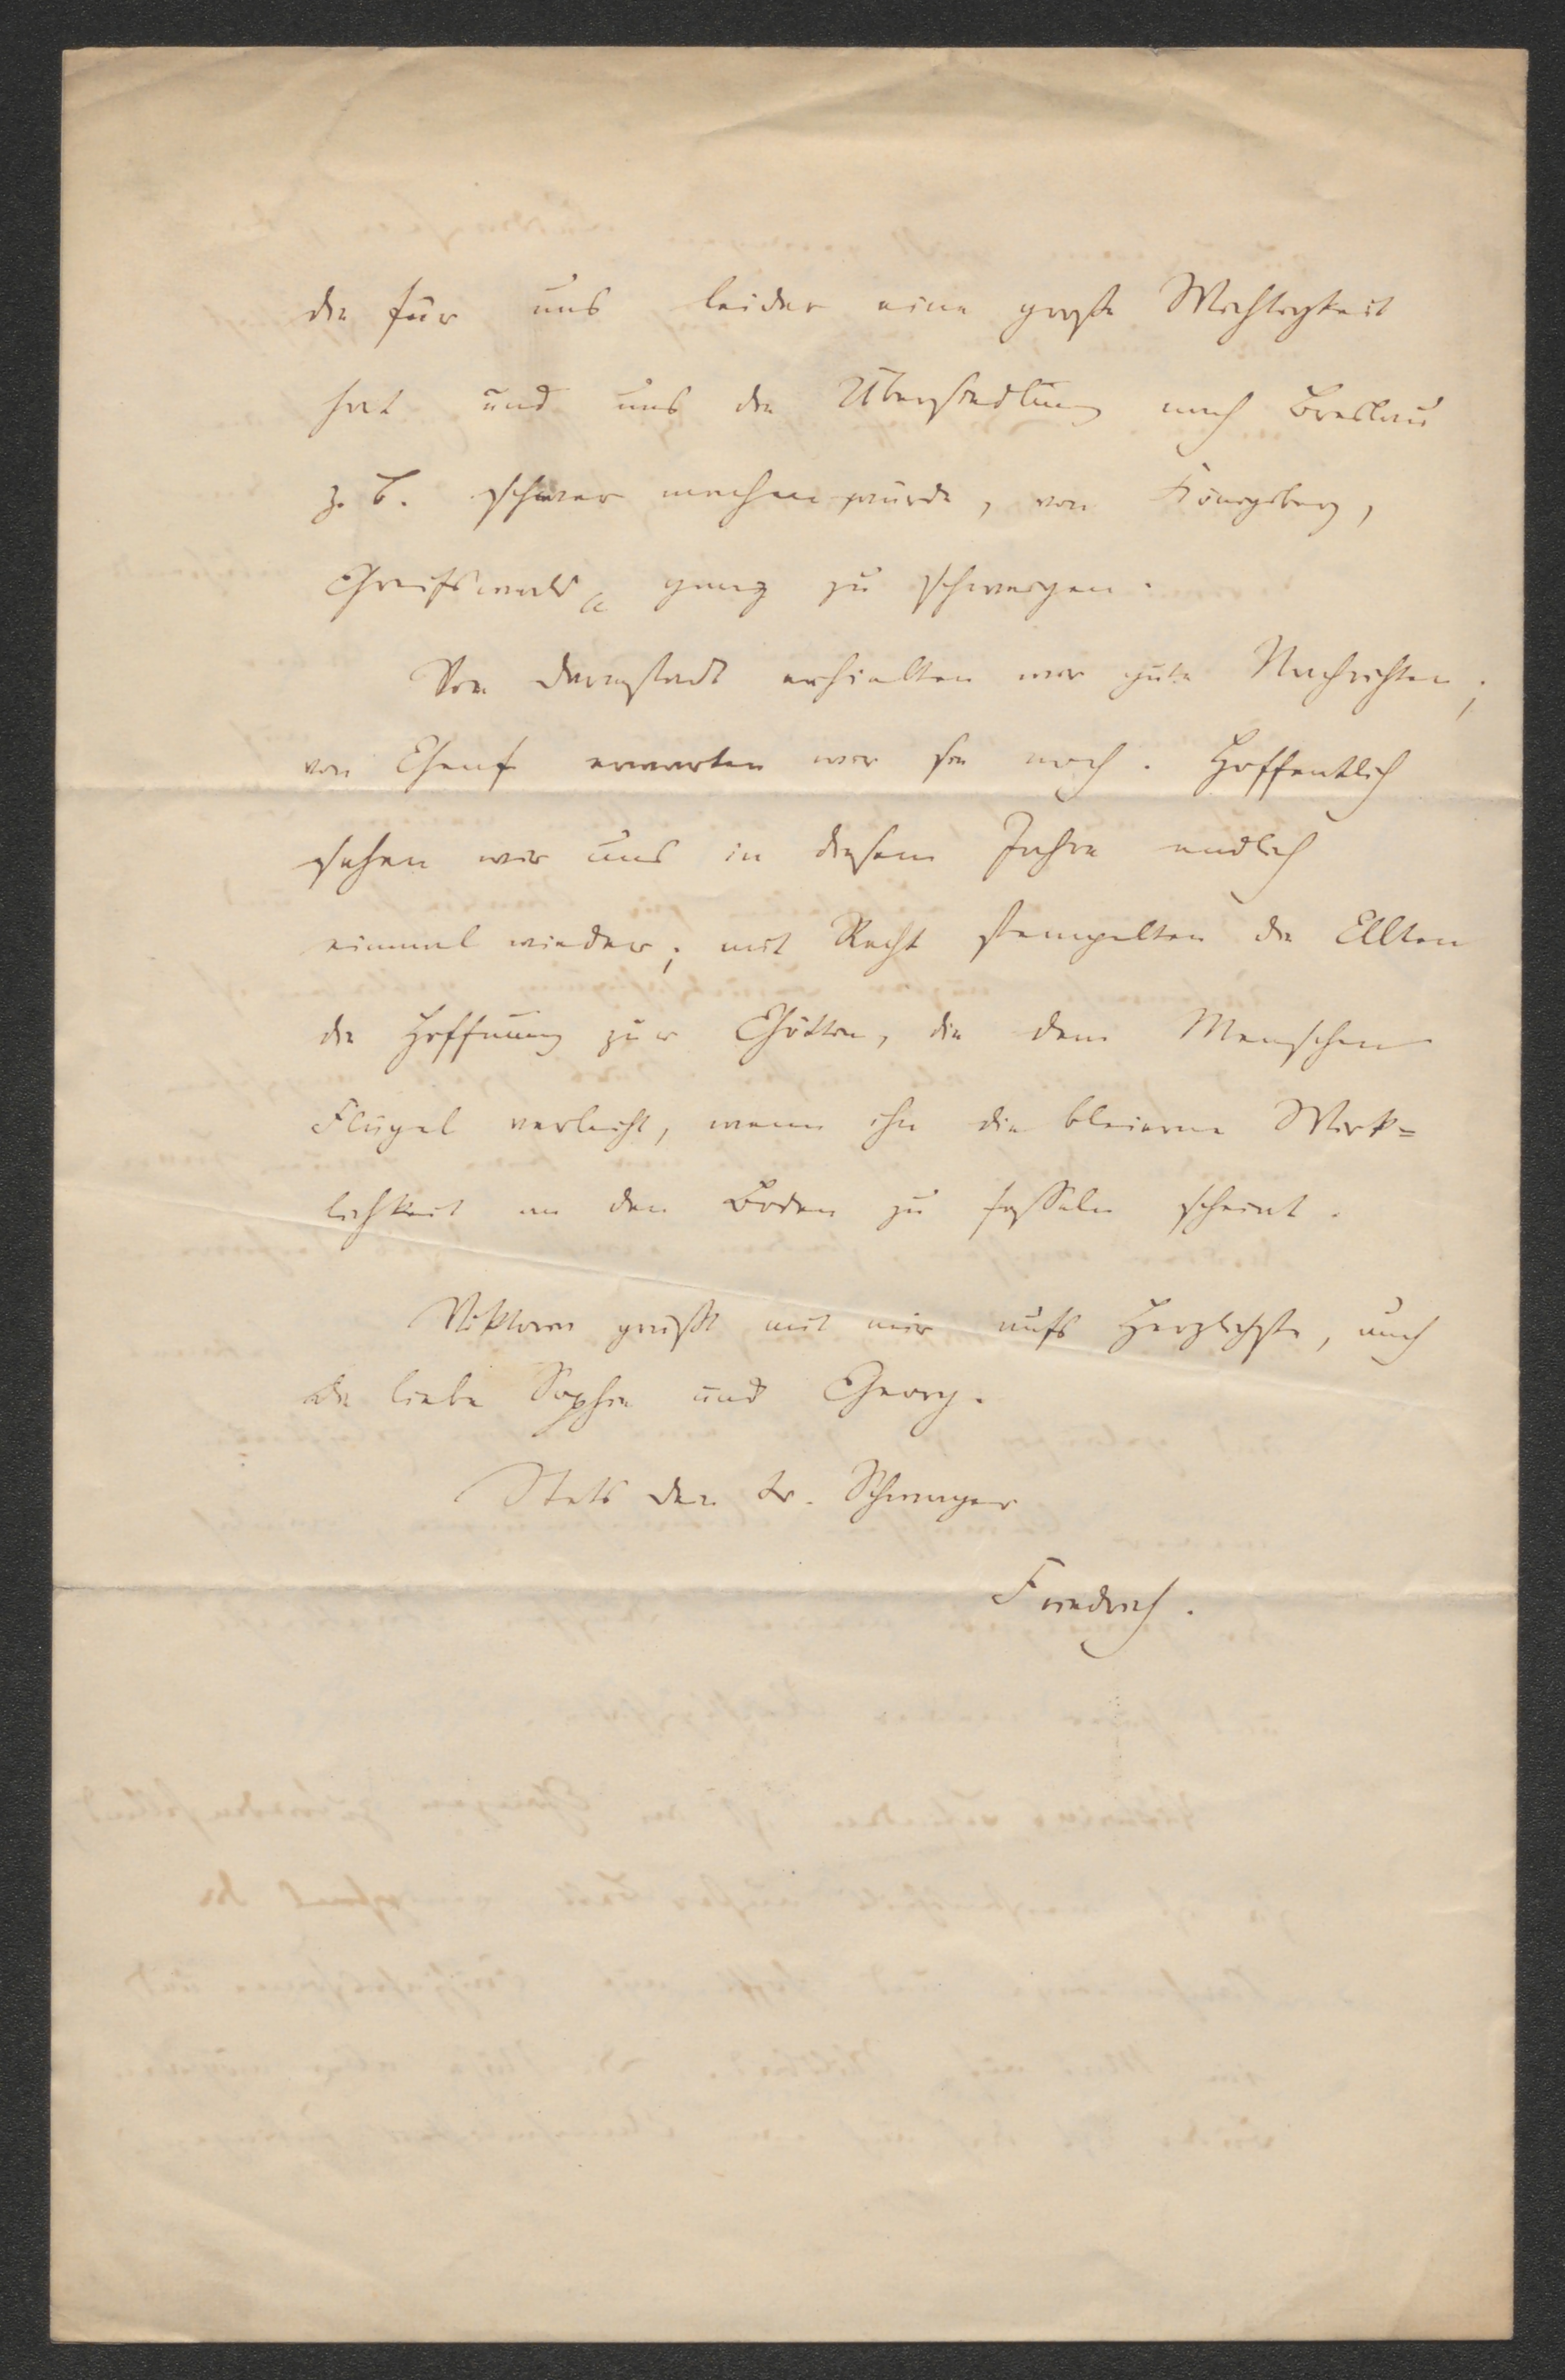 die für uns leider eine große Wichtigkeit
hat und uns die Übersiedlung nach Breslau
z. B. schwer machen würde, von Königsberg,
Greifswald ganz zu schweigen.
Von Darmstadt erhielten wir gute Nachrichten;
von Genf erwarten wir sie noch. Hoffentlich
sehen wir uns in diesem Jahre endlich
einmal wieder; mit Recht stempelten die Alten
die Hoffnung zur Göttin, die dem Menschen
Flügel verleiht, wenn ihn die bleierne Wirk=
lichkeit an den Boden zu fesseln scheint.
Viktorie grüßt mit mir aufs Herzlichste, auch
die liebe Sophie und Georg.
Stets Dein tr. Schwager
Friedrich.